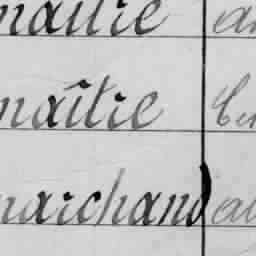 maître
maître
marchand au